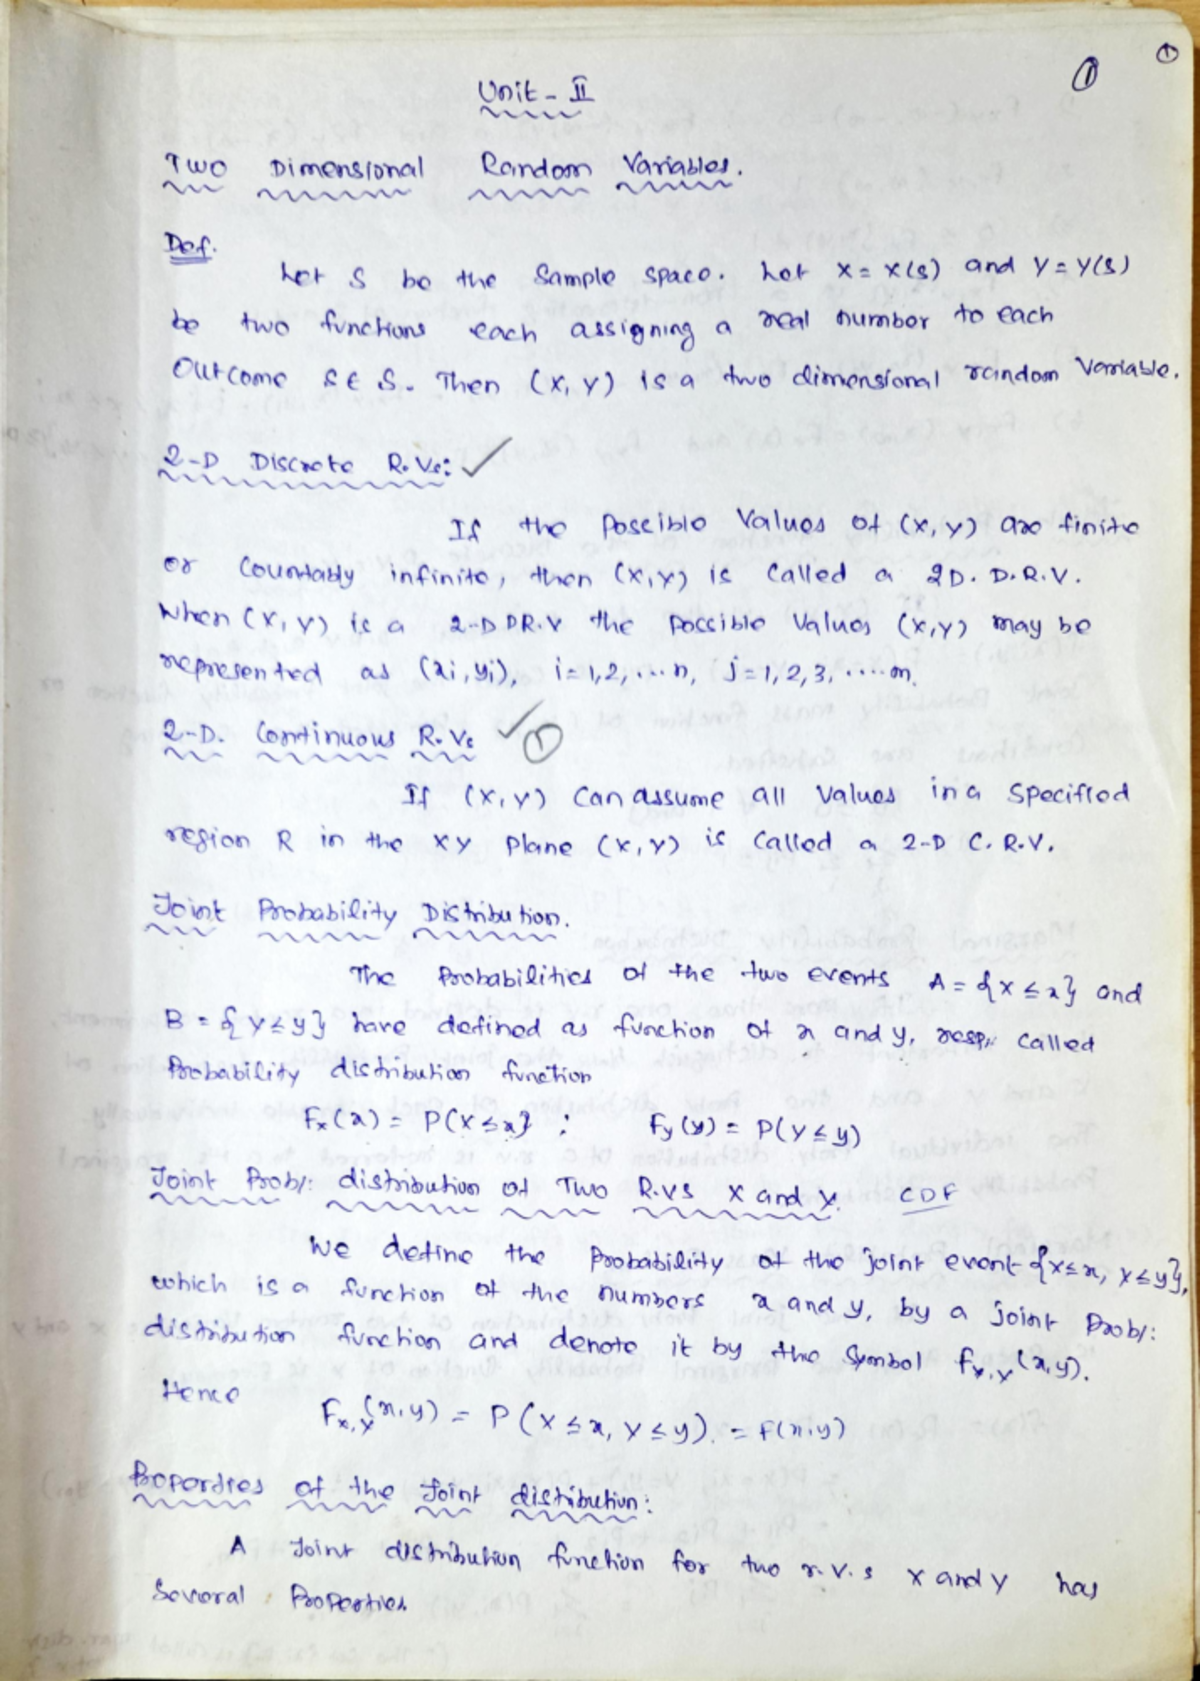 ①
①
Unit - II
Two Dimensional Random Variables.
Def.
Let S be the Sample space. Let X = X(s) and Y = Y(s)
be two functions each assigning a real number to each
Outcome s ∈ S. Then (X, Y) is a two dimensional random Variable.
2-D Discrete R.Vs: ✓
If the Possible Values of (X, Y) are finite
or Countably infinite, then (X, Y) is Called a 2D. D.R.V.
When (X, Y) is a 2-D DR.V the Possible Values (X, Y) may be
represented as (xi, yi), i = 1,2, ... n, j = 1,2,3, ..... m.
2-D. Continuous R.Vs ✓ ①
If (X, Y) Can assume all Values in a Specified
region R in the XY Plane (X, Y) is Called a 2-D C.R.V.
Joint Probability Distribution.
The Probabilities of the two events A = {X ≤ x} and
B = {Y ≤ y} have defined as function of x and y, resp., Called
Probability distribution function
Fx(x) = P(X ≤ x} ; Fy(y) = P(Y ≤ y)
Joint Prob/: distribution of Two R.VS X and Y. CDF
We define the Probability of the joint event {X≤x, Y≤y},
which is a function of the numbers x and y, by a joint Prob/:
distribution function and denote it by the Symbol Fx,y(x,y).
Hence Fx,y(x,y) = P(X ≤ x, Y ≤ y). = F(x,y)
Properties of the Joint distribution:
A Joint distribution function for two r.v.s X and Y has
Several Properties